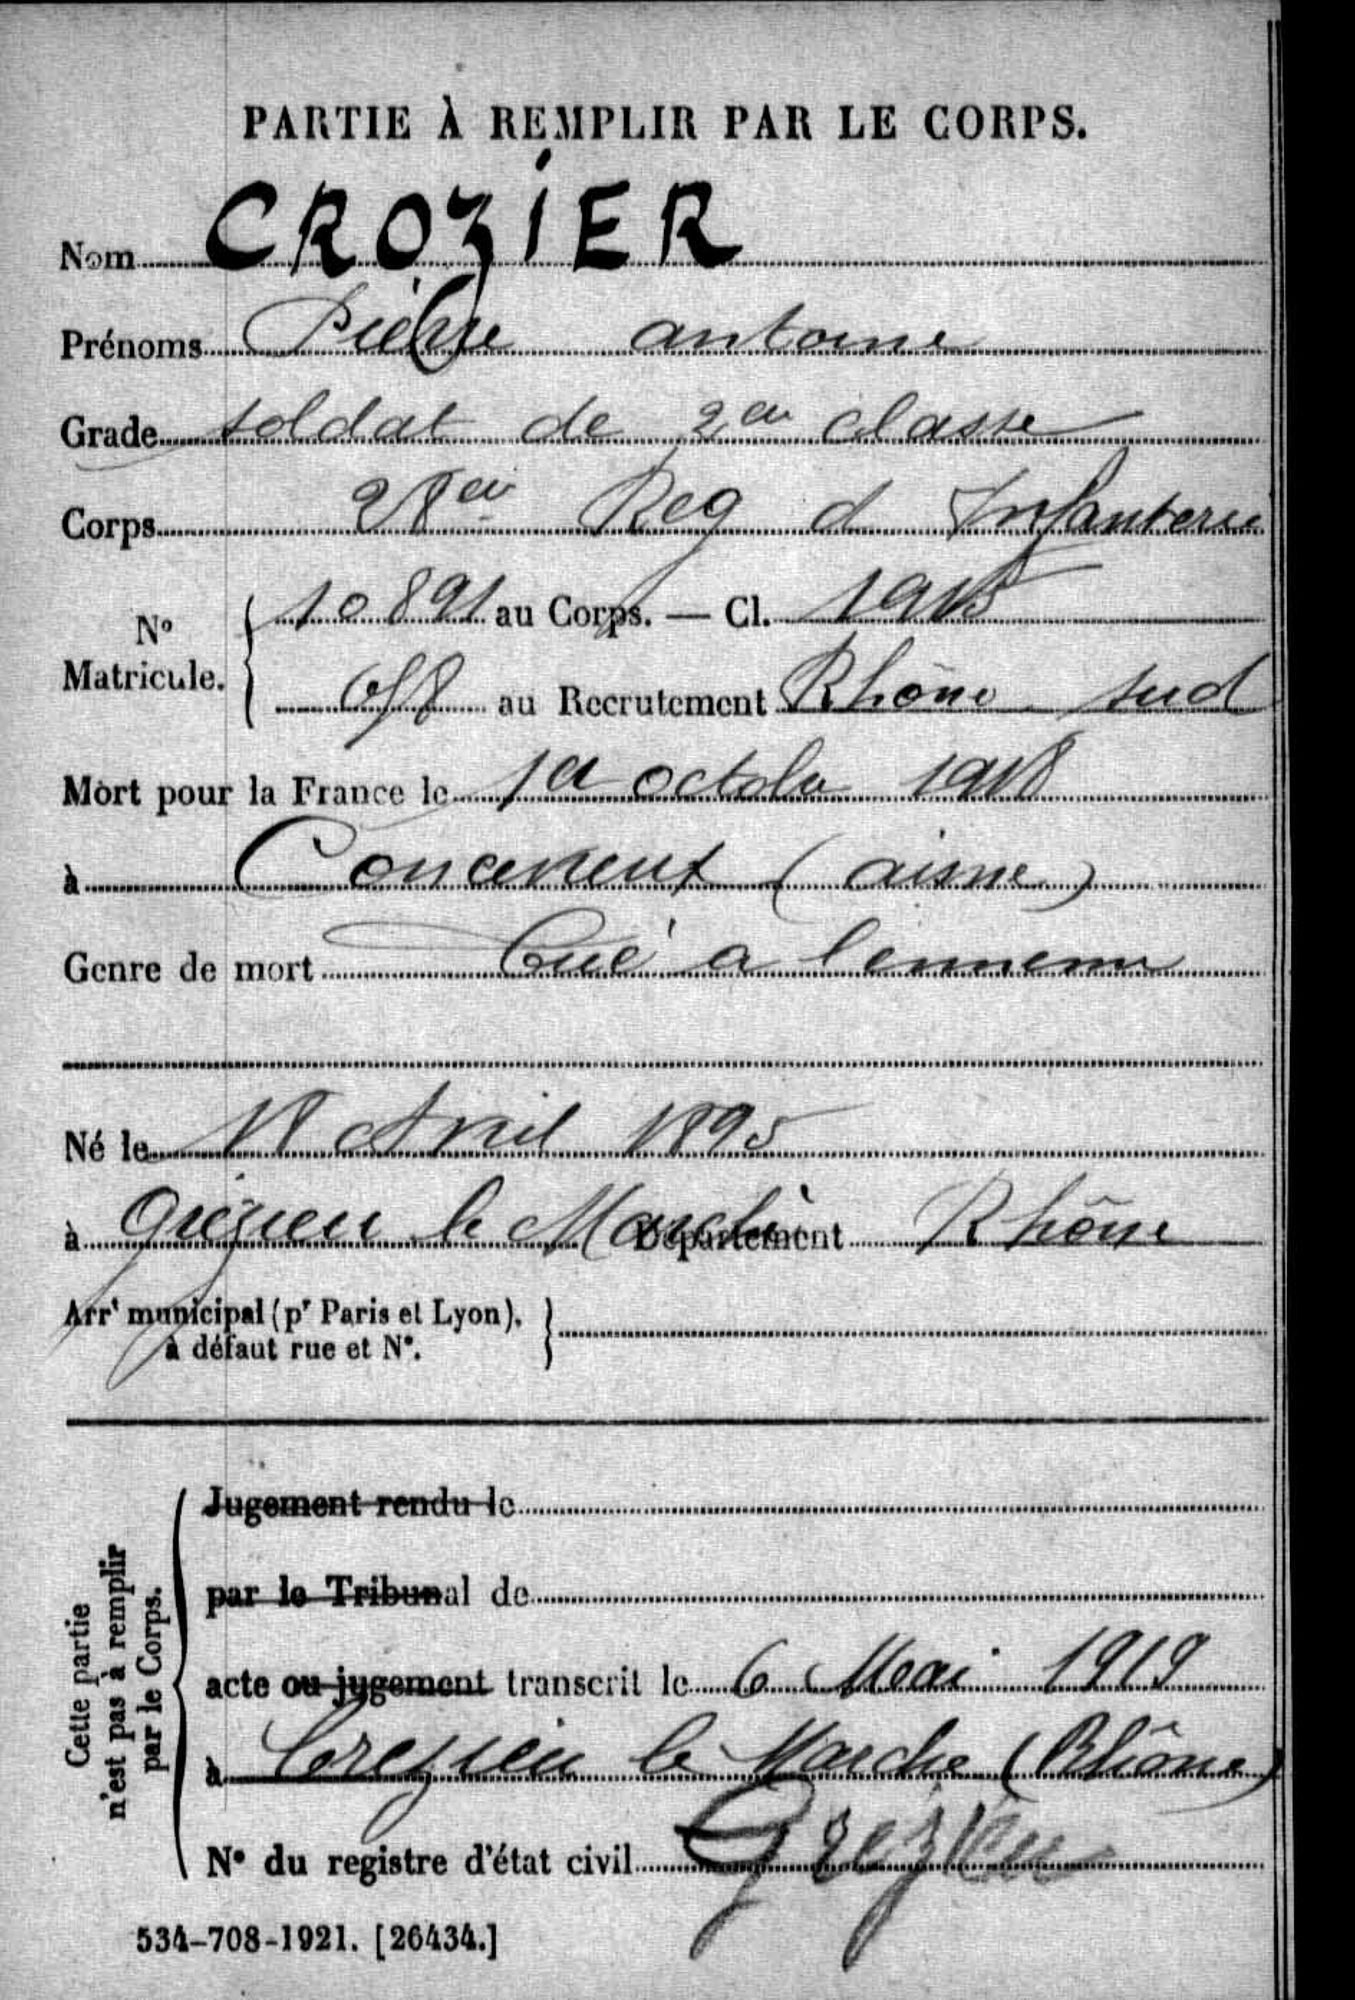 PARTIE À REMPLIR PAR LE CORPS.
Nom CROZIER
Prénoms Pierre antoine
Grade soldat de 2em classe
Corps 28em Reg d Infanterie
N° Matricule. 10891 au Corps. — Cl. 1915
au Recrutement Rhône sud
Mort pour la France le 1er octobre 1918
à (aisne)
Genre de mort Tué a lennemi
Né le 18 Avril 1895
à Grézieu le Marché Département Rhône
Arrt municipal (pr Paris et Lyon),
à défaut rue et N°.
Cette partie
n'est pas à remplir
par le Corps.
Jugement rendu le
par le Tribunal de
acte ou jugement transcrit le 6 Mai 1919
à Grezieu le Marche (Rhône)
N° du registre d'état civil Grezieu
534-708-1921. [26434.]